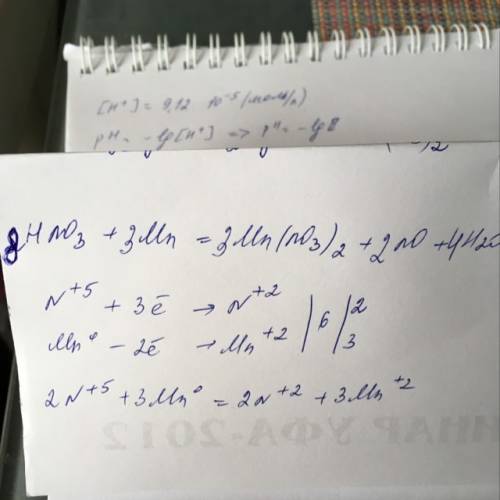 [H⁺] = 9,12 · 10⁻⁵ (моль/л)
pH = -lg[H⁺] => pH = -lg
8HNO₃ + 3Mn = 3Mn(NO₃)₂ + 2NO + 4H₂O
N⁺⁵ + 3ē → N⁺² | 6 | 2
Mn⁰ - 2ē → Mn⁺² | 3
2N⁺⁵ + 3Mn⁰ = 2N⁺² + 3Mn⁺²
ИНАР УФА-2012